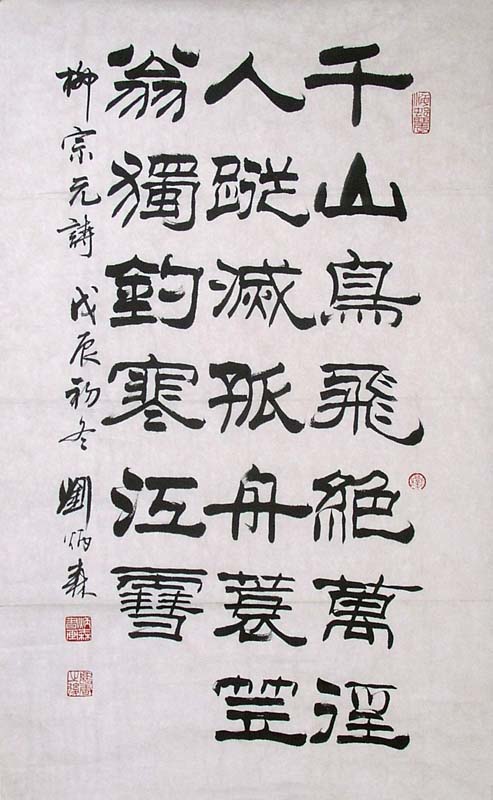 千山鳥飛絕萬徑
人蹤滅孤舟蓑笠
翁獨釣寒江雪
柳宗元詩 戊辰初冬 劉炳森